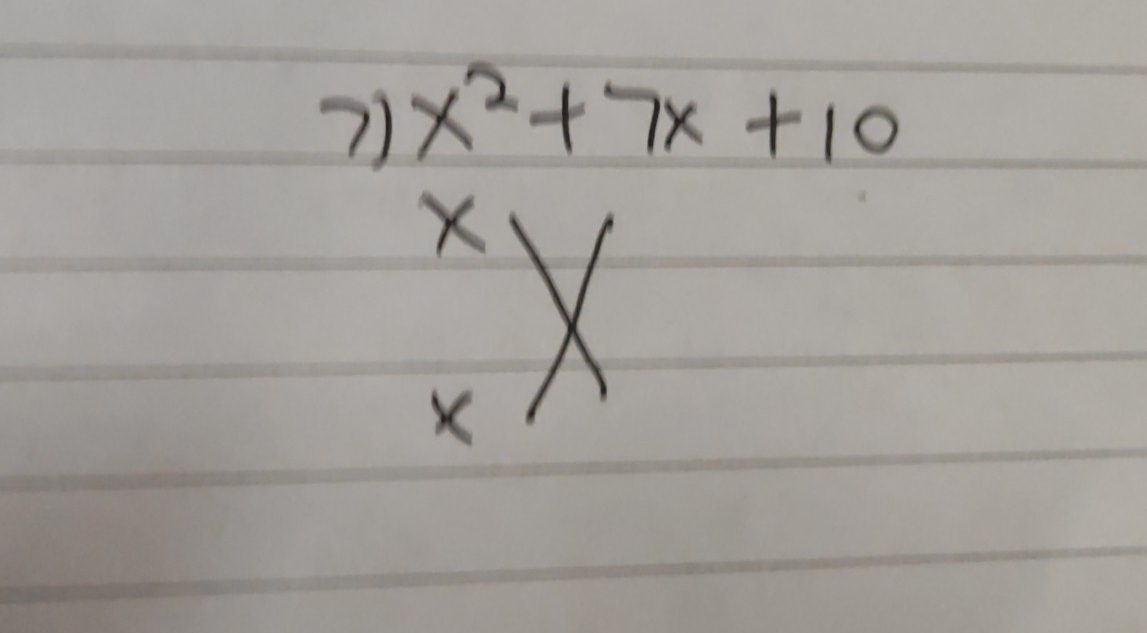 7) x² + 7x + 10
x
x